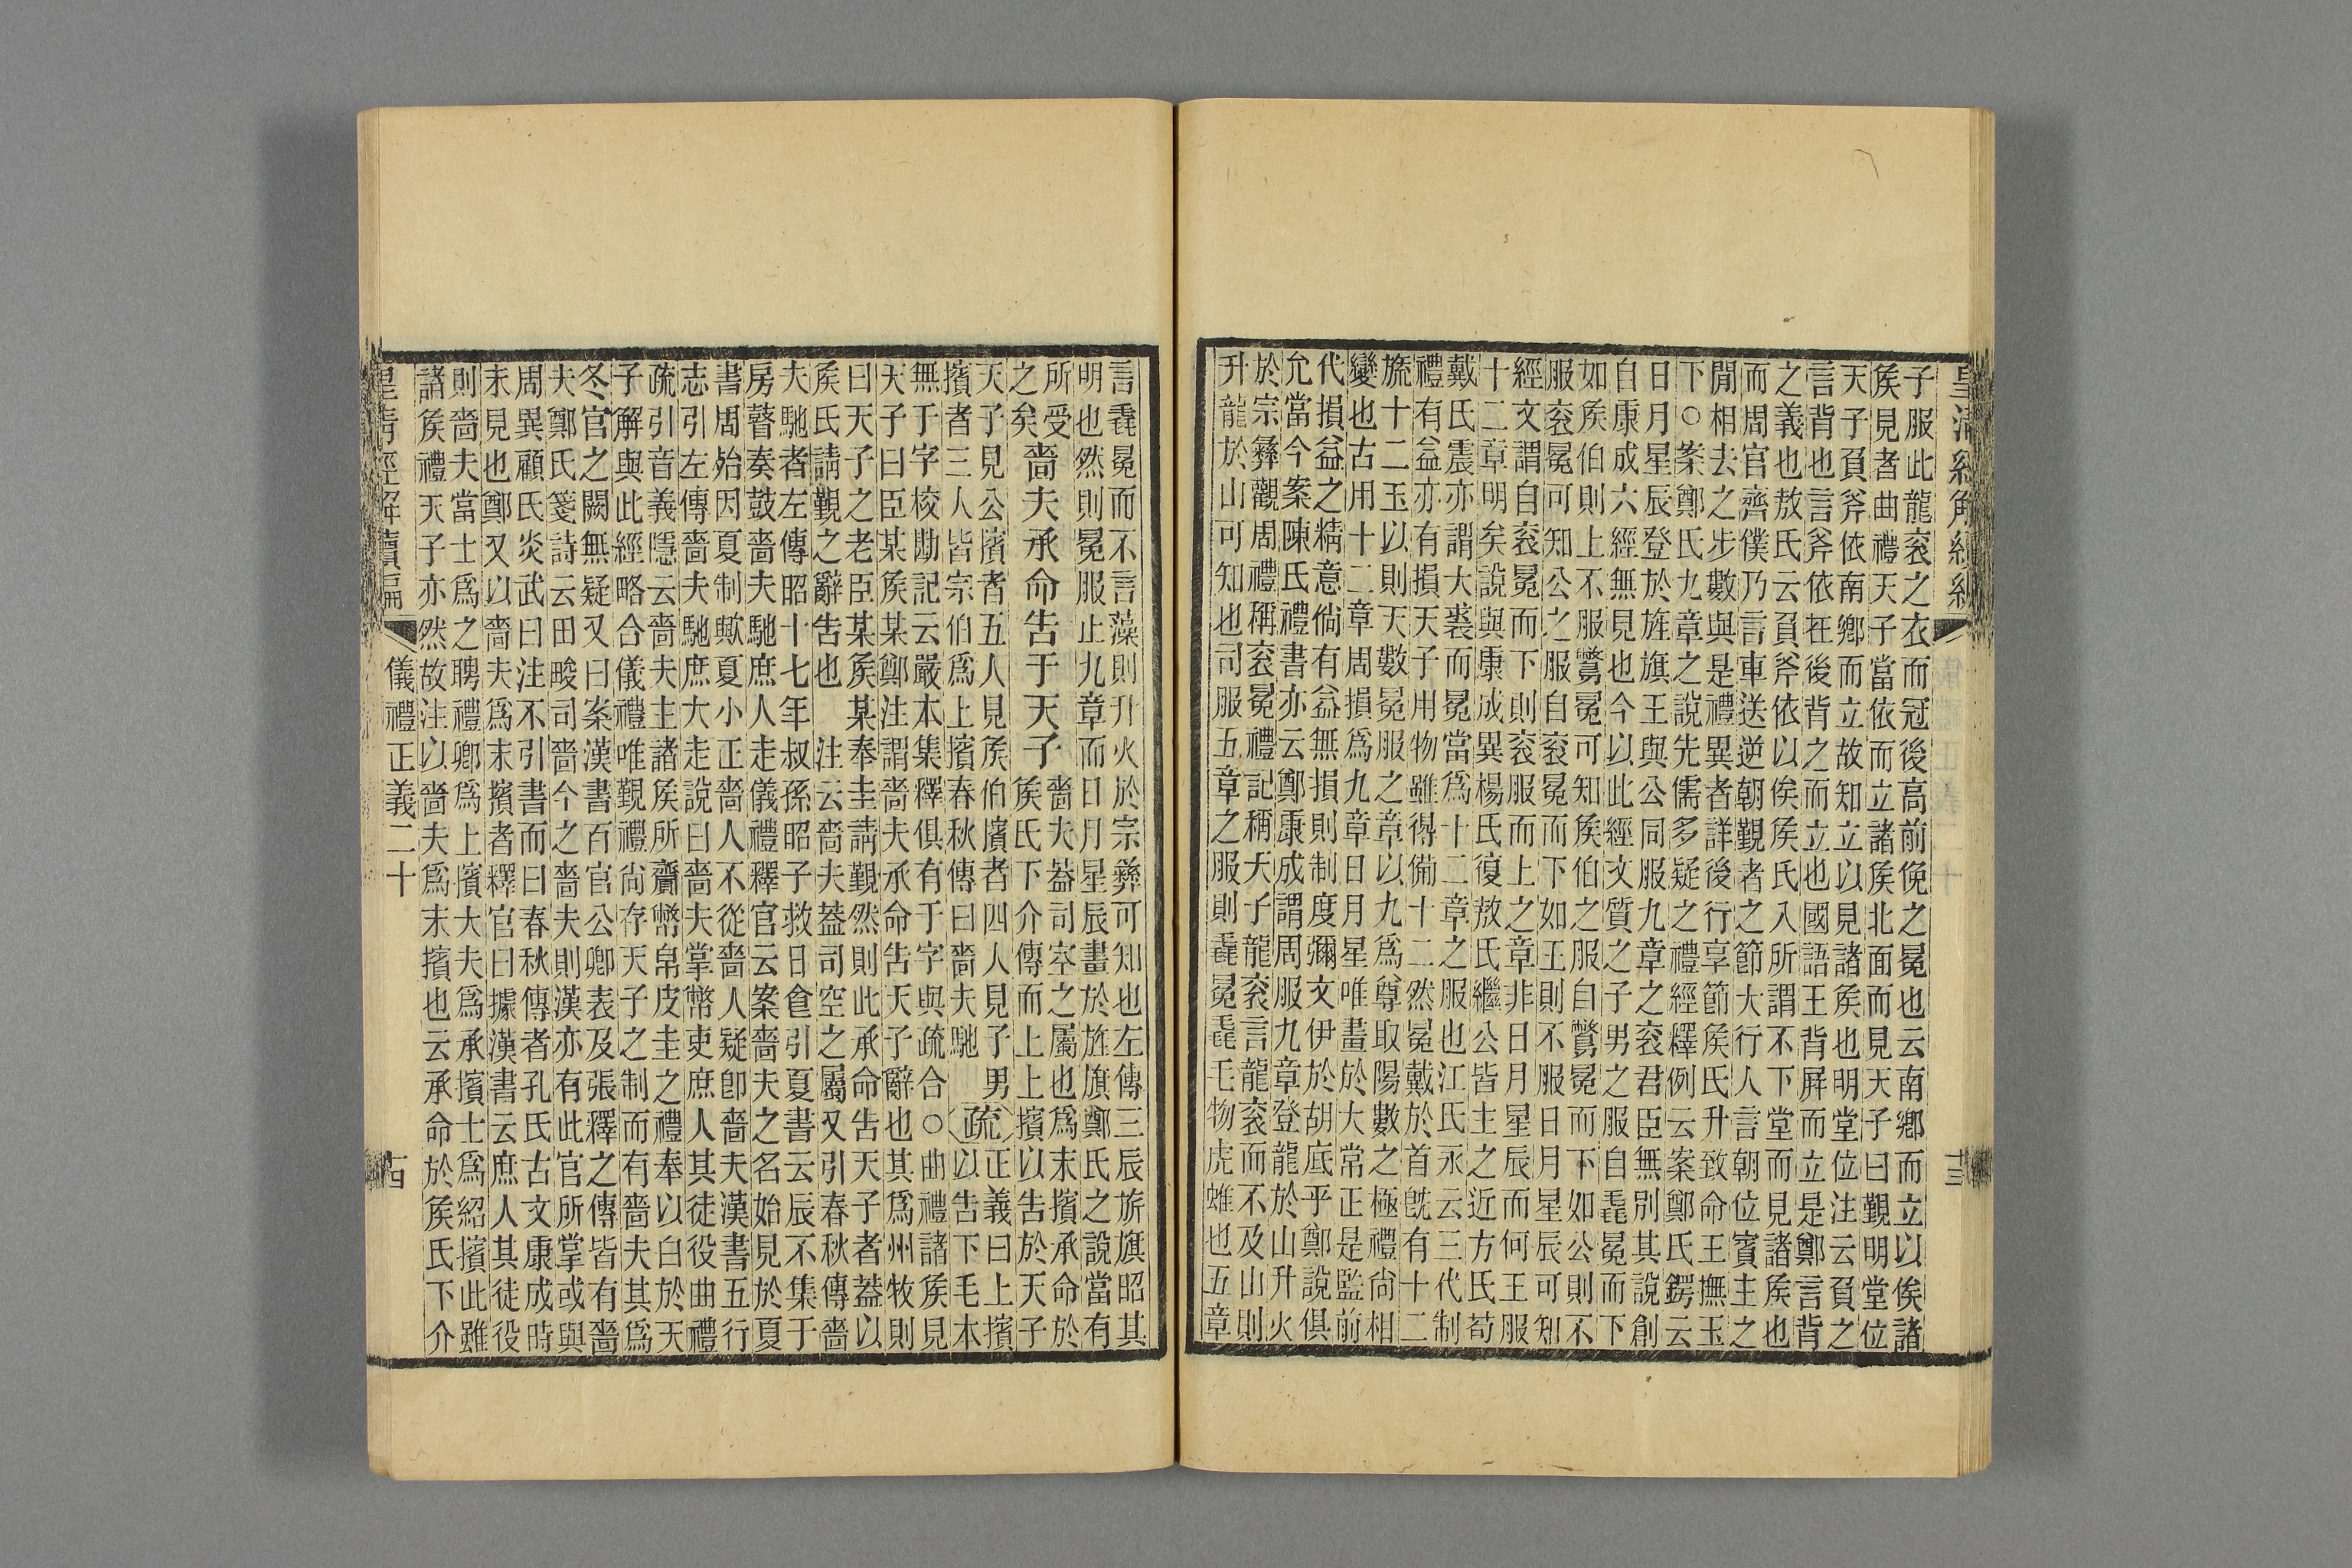 子服此龍衮之衣而冠後高前俛之冕也云南鄉而立以俟諸
矦見者曲禮天子當依而立諸矦北面而見天子曰覲明堂位
天子負斧依南鄉而立故知立以見諸矦也明堂位注云負之
言背也言斧依在後背之而立也國語王背屏而立是鄭言背
之義也敖氏云負斧依以俟矦氏入所謂不下堂而見諸矦也
而周官齊僕乃言車送逆朝覲者之節大行人言朝位賓主之
閒相去之步數與是禮異者詳後行享節矦氏升致命王撫玉
下○案鄭氏九章之說先儒多疑之禮經釋例云案鄭氏鍔云
日月星辰登於旌旗王與公同服九章之衮君臣無別其說創
自康成六經無見也今以此經文質之子男之服自毳冕而下
如矦伯則上不服鷩冕可知矦伯之服自鷩冕而下如公則不
服衮冕可知公之服自衮冕而下如王則不服日月星辰可知
經文謂自衮冕而下則衮服而上之章非日月星辰而何王服
十二章明矣說與康成異楊氏復敖氏繼公皆主之近方氏苞
戴氏震亦謂大裘而冕當爲十二章之服也江氏永云三代制
禮有益亦有損天子用物雖得備十二然冕戴於首旣有十二
旒十二玉以則天數冕服之章以九爲尊取陽數之極禮尙相
變也古用十二章周損爲九章日月星唯畫於大常正是監前
代損益之精意倘有益無損則制度彌文伊於胡底乎鄭說俱
允當今案陳氏禮書亦云鄭康成謂周服九章登龍於山升火
於宗彝觀周禮稱衮冕禮記稱天子龍衮言龍衮而不及山則
升龍於山可知也司服五章之服則毳冕毳毛物虎蜼也五章
言毳冕而不言藻則升火於宗彝可知也左傳三辰旂旗昭其
明也然則冕服止九章而日月星辰畫於旌旗鄭氏之說當有
所受
之矣
嗇夫承命告于天子
嗇夫葢司空之屬也爲末擯承命於
矦氏下介傳而上上擯以告於天子
天子見公擯者五人見矦伯擯者四人見子男
擯者三人皆宗伯爲上擯春秋傳曰嗇夫馳
疏
正義曰上擯
以告下毛本
無于字校勘記云嚴本集釋俱有于字與疏合○曲禮諸矦見
天子曰臣某矦某鄭注謂嗇夫承命告天子辭也其爲州牧則
曰天子之老臣某矦某奉圭請覲然則此承命告天子者葢以
矦氏請覲之辭告也　注云嗇夫葢司空之屬又引春秋傳嗇
夫馳者左傳昭十七年叔孫昭子救日食引夏書云辰不集于
房瞽奏鼓嗇夫馳庶人走儀禮釋官云案嗇夫之名始見於夏
書周始因夏制歟夏小正嗇人不從嗇人疑卽嗇夫漢書五行
志引左傳嗇夫馳庶大走說曰嗇夫掌幣吏庶人其徒役曲禮
疏引音義隱云嗇夫主諸矦所齎幣帛皮圭之禮奉以白於天
子解與此經略合儀禮唯覲禮尙存天子之制而有嗇夫其爲
冬官之闕無疑又曰案漢書百官公卿表及張釋之傳皆有嗇
夫鄭氏箋詩云田畯司嗇今之嗇夫則漢亦有此官所掌或與
周異顧氏炎武曰注不引書而曰春秋傳者孔氏古文康成時
未見也鄭又以嗇夫爲末擯者釋官曰據漢書云庶人其徒役
則嗇夫當士爲之聘禮卿爲上擯大夫爲承擯士爲紹擯此雖
諸矦禮天子亦然故注以嗇夫爲末擯也云承命於矦氏下介
皇清經解續編
儀禮正義二十
十四